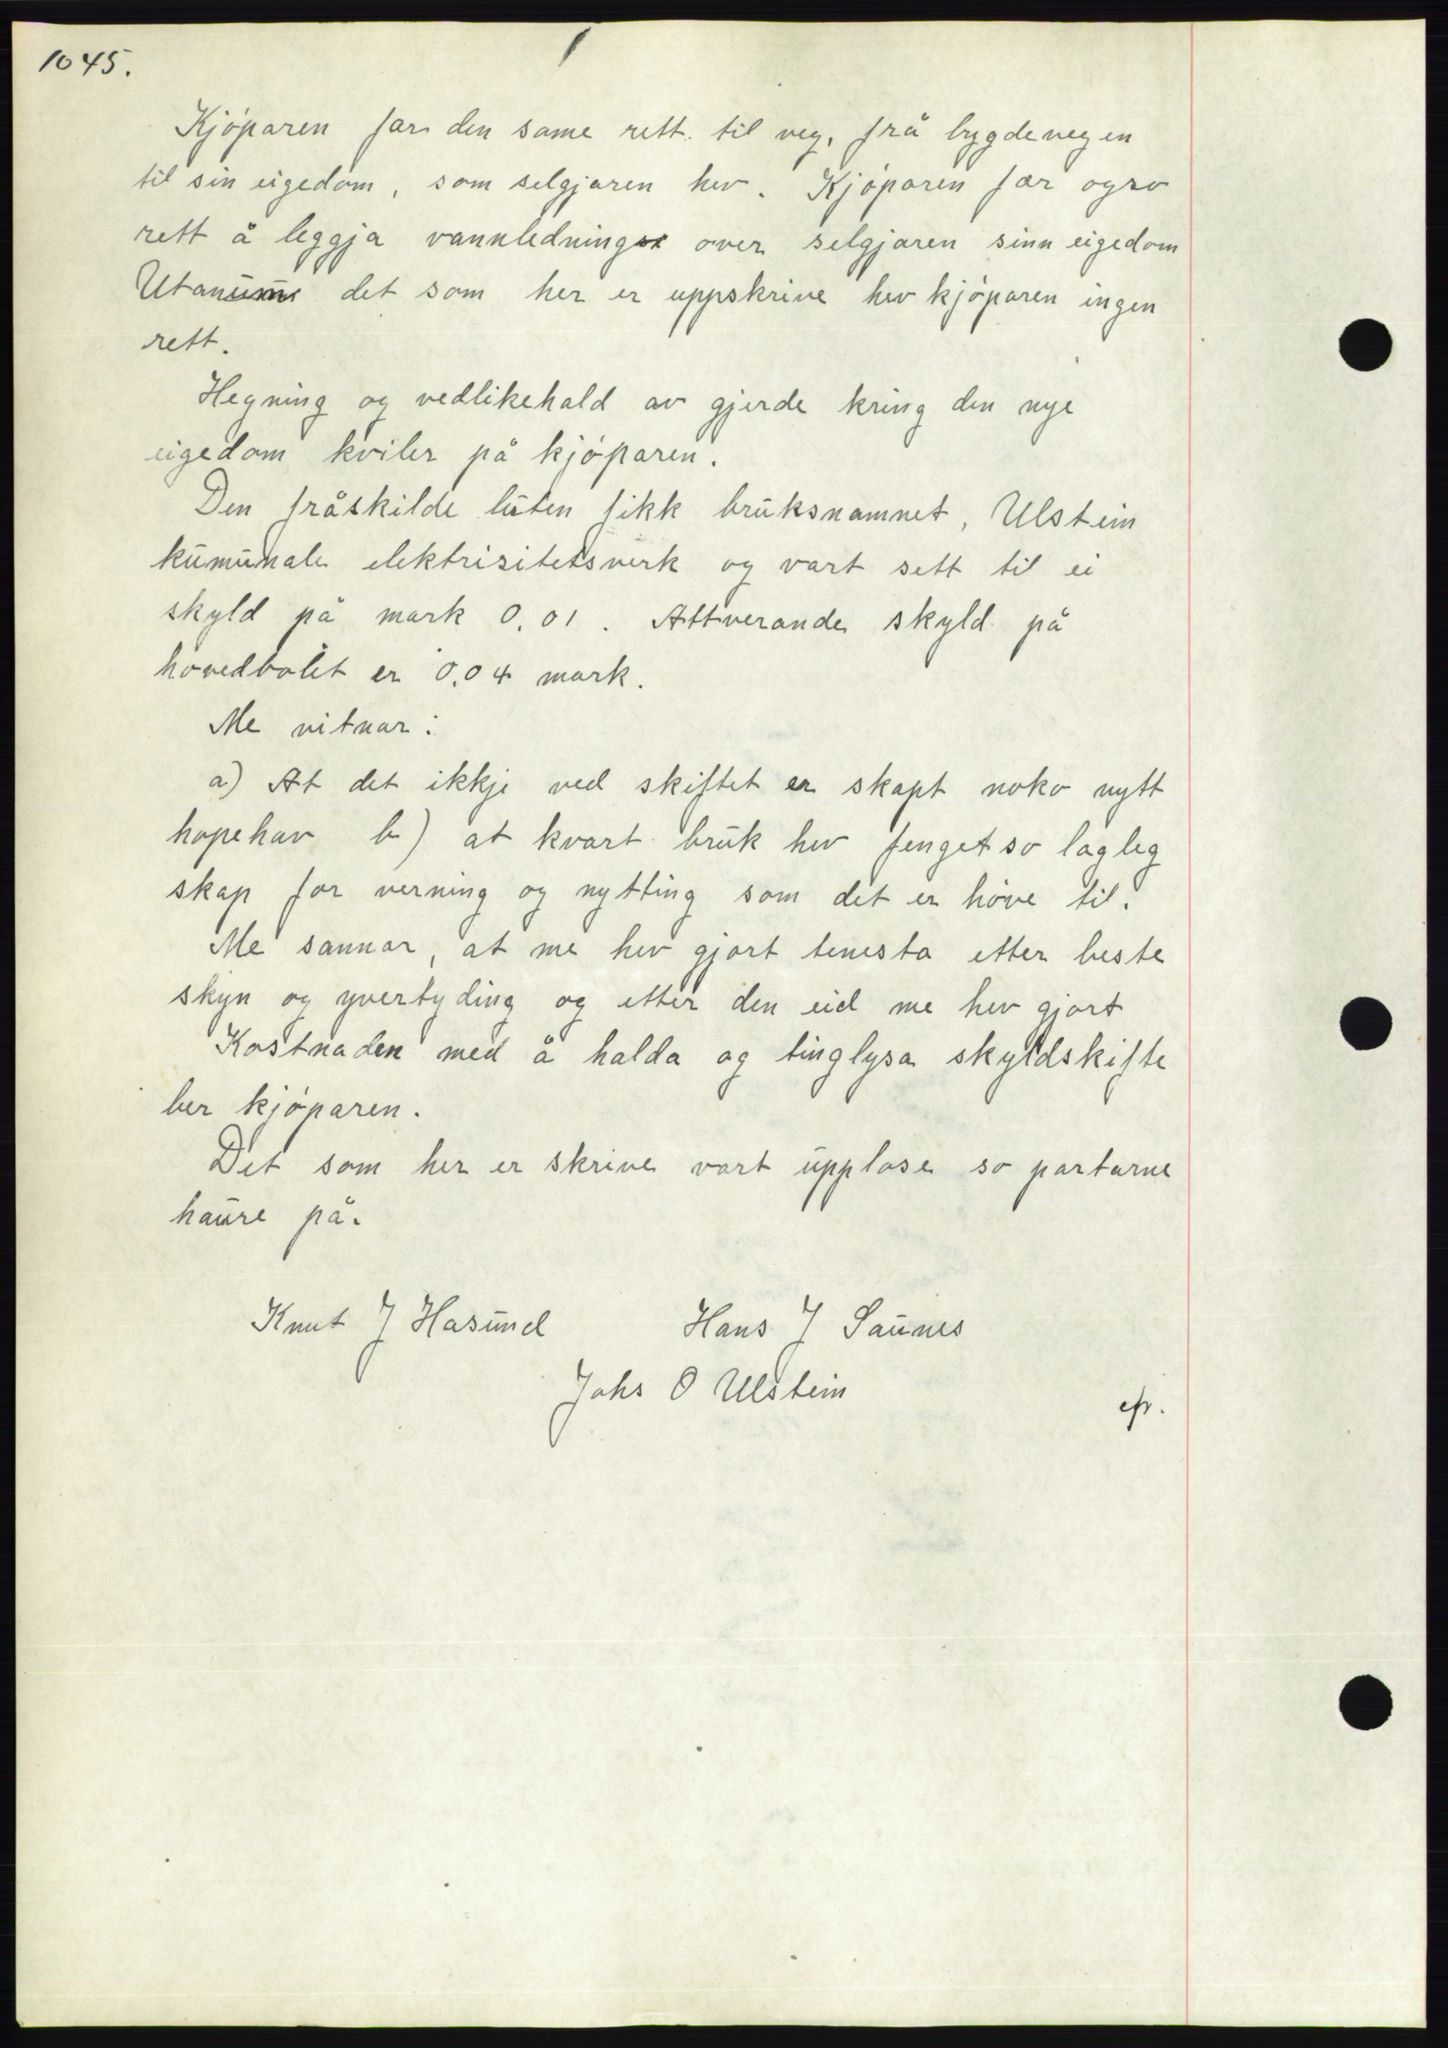 1045.
Kjøparen fær den same rett til veg, frå bygdevegen
til sin eigedom, som selgjaren hev. Kjøparen fær ogso
rett å leggja vannledning over selgjaren sinn eigedom
Utanum det som her er uppskrive hev kjøparen ingen
rett.
Hegning og vedlikehald av gjerde kring den nye
eigedom kviler på kjøparen.
Den fråskilde luten fikk bruksnamnet, Ulstein
kumunale elektrisitetsverk og vart sett til ei
skyld på mark 0,01. Attverande skyld på
hovedbolet er 0,04 mark.
Me vitnar:
a) At det ikkje ved skiftet er skapt noko nytt
hopehav b) at kvart bruk hev fenget so lagleg
skap for verning og nytting som det er høve til.
Me sannar, at me hev gjort tenesta etter beste
skyn og yvertyding og etter den eid me hev gjort
Kostnaden med å halda og tinglysa skyldskifte
ber kjøparen.
Det som her er skrive vart upplese so partarne
høure på.
Knut J Hasund Hans J Saunes
Johs O Ulstein